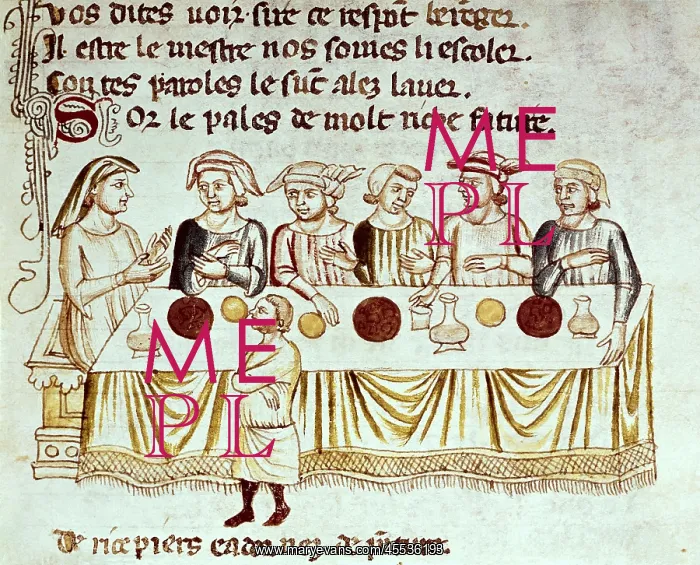 vos dites uoir· sire ce respōt berēger.
Il estre le mestre nos somes li escoler.
Con tes paroles le suē alez lauer.
Sor le pales de molt
ME
PL
ME
PL
De rice piers
www.maryevans.com/45536199